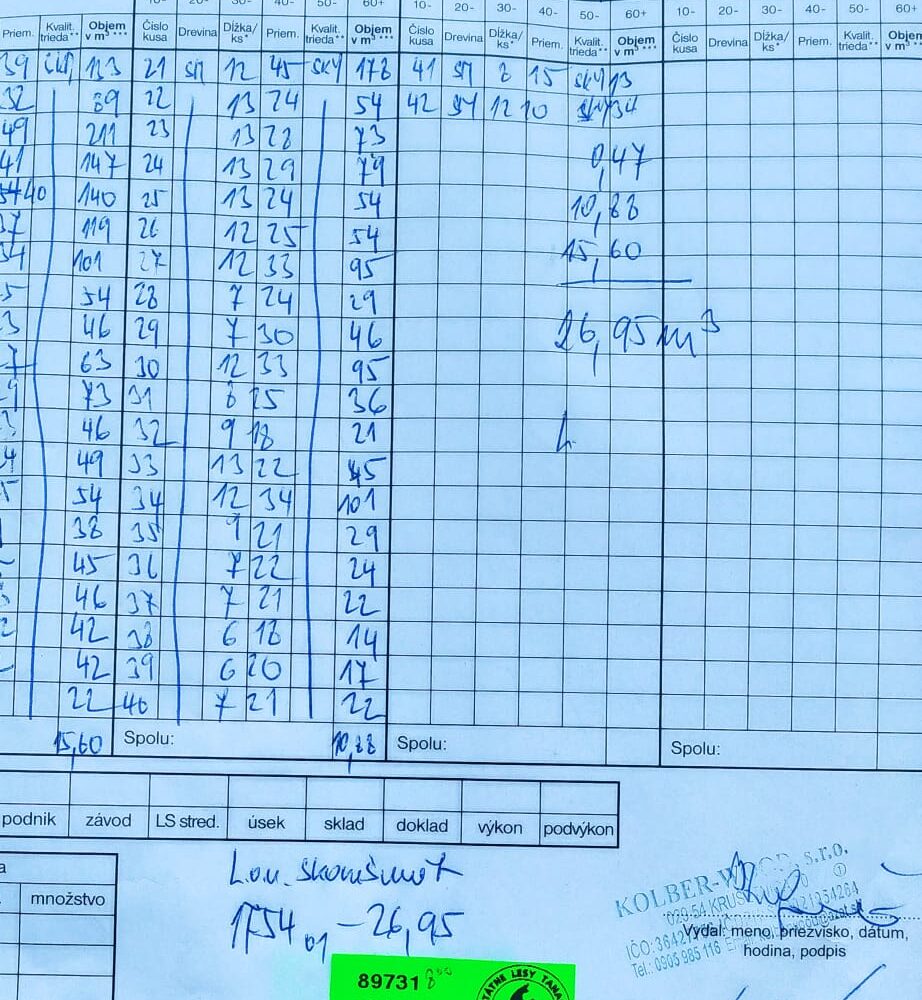 10- 20- 30- 40- 50- 60+ 10- 20- 30- 40- 50- 60+ 10- 20- 30- 40- 50- 60+
Priem. Kvalit. trieda** Objem v m³*** Číslo kusa Drevina Dĺžka/ ks* Priem. Kvalit. trieda** Objem v m³*** Číslo kusa Drevina Dĺžka/ ks* Priem. Kvalit. trieda** Objem v m³*** Číslo kusa Drevina Dĺžka/ ks* Priem. Kvalit. trieda** Objem v m³***
39 133 21 SM 12 45 SKY 178 41 SM 8 15 SKY 13
32 89 22 13 24 54 42 SM 12 10 34
49 211 23 13 28 73
41 147 24 13 29 79 0,47
40 140 25 13 24 54 10,88
37 119 26 12 25 54 15,60
34 101 27 12 33 95
5 54 28 7 24 29
3 46 29 7 30 46 26,95 m³
7 63 30 12 33 95
9 73 31 8 25 36
3 46 32 9 18 21
4 49 33 13 22 45
5 54 34 12 34 101
38 35 9 21 29
45 36 7 22 24
46 37 7 21 22
2 42 38 6 18 14
42 39 6 20 17
22 40 7 21 22
15,60 Spolu: 10,88 Spolu: Spolu:
podnik závod LS stred. úsek sklad doklad výkon podvýkon
a
množstvo
L.o.u. Škorušmot
1754 01 - 26,95
KOLBER-WOOD s.r.o.
Vydal: meno, priezvisko, dátum,
hodina, podpis
Tel.: 0905 985 116
89731
ŠTÁTNE LESY TANAP